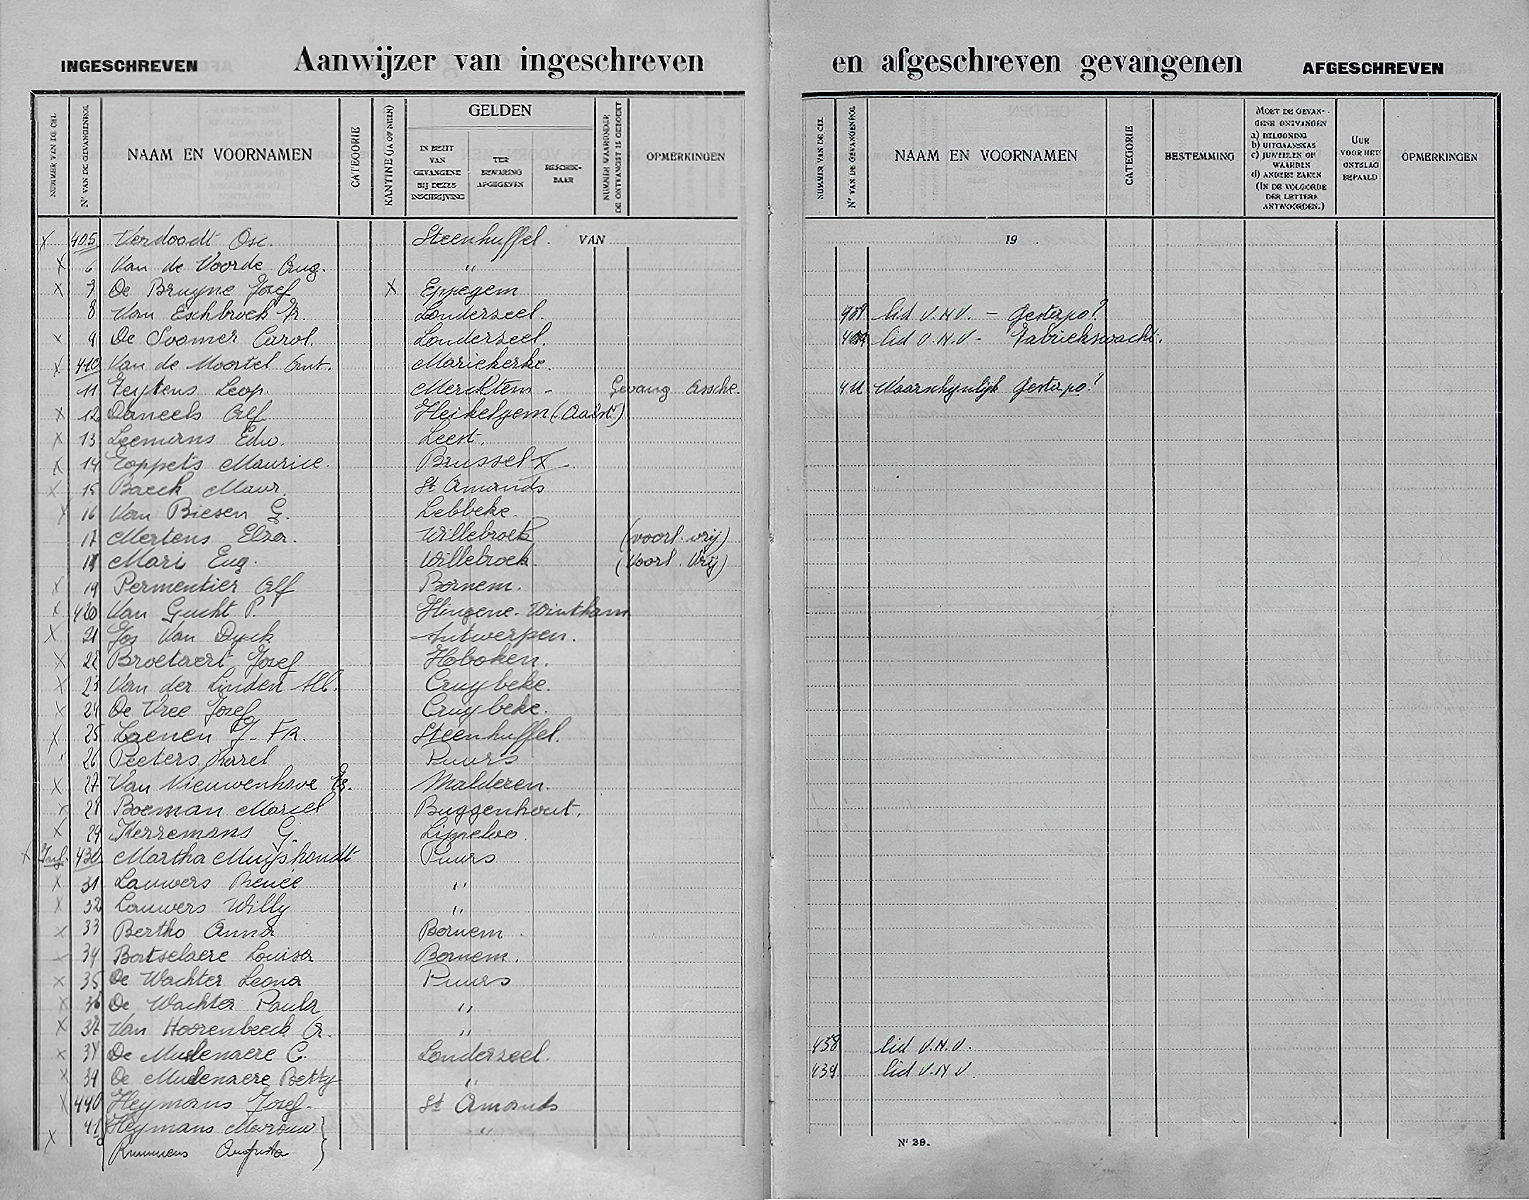 INGESCHREVEN Aanwijzer van ingeschreven en afgeschreven gevangenen AFGESCHREVEN
NUMMER VAN DE CEL
Nr VAN DE GEVANGENROL
NAAM EN VOORNAMEN
CATEGORIE
KANTINE (JA OF NEEN)
GELDEN
IN BEZIT VAN GEVANGENE BIJ DEZES INSCHRIJVING
TER BEWARING AFGEGEVEN
BESCHIK-BAAR
NUMMER WAARONDER DE ONTVANGST IS GEBOEKT
OPMERKINGEN
NUMMER VAN DE CEL
Nr VAN DE GEVANGENROL
NAAM EN VOORNAMEN
CATEGORIE
BESTEMMING
MOET DE GEVAN-
GENE ONTVANGEN
a) BELOONING
b) UITGAANSKAS
c) JUWEELEN OF
WAARDEN
d) ANDERE ZAKEN
(IN DE VOLGORDE
DER LETTERS
ANTWOORDEN.)
UUR
VOOR HET
ONTSLAG
BEPAALD
OPMERKINGEN
VAN
19
X 405 Verdoodt Osc. Steenhuffel.
X 6 Van de Voorde Aug. "
X 7 De Bruyne Jozef X Eppegem
8 Van Eeckbroek Fr. Londerzeel.
X 9 De Soomer Carol. Londerzeel.
X 410 Van de Moortel Ant. Mariekerke.
11 Zeytens Leop. Merchtem - Gevang Assche.
X 12 Daneels Alf Heikelgem (Aalst)
X 13 Leemans Edw. Leest.
X 14 Toppets Maurice. Brussel X
X 15 Baeck Maur. St Amands
X 16 Van Biesen G. Lebbeke.
17 Mertens Elza. Willebroek (voorl. vrij)
18 Mari Eug. Willebroek (Voorl. Vrij)
X 19 Permentier Alf Bornem.
X 420 Van Gucht P. Hingene-Wintham
X 21 Jos Van Dyck Antwerpen.
X 22 Broetaert Jozef Hoboken.
X 23 Van der Linden Alb. Cruybeke.
X 24 De Vree Jozef Cruybeke.
X 25 Laenen G. FR. Steenhuffel.
26 Peeters Karel Puurs
X 27 Van Nieuwenhove Malderen.
28 Boeman Marcel Buggenhout.
X 29 Kerremans G. Lippeloo.
X 430 Martha Muyshondt Puurs
X 31 Lauwers Renée "
X 32 Lauwers Willy "
X 33 Bertho Anna Bornem
34 Bortselaere Louisa Bornem.
X 35 De Wachter Leona Puurs
X 36 De Wachter Paula "
X 37 Van Hoorenbeeck "
X 38 De Mulenaere C. Londerzeel.
X 39 De Mulenaere Betty "
X 440 Heymans Jozef. St Amands
X 41 Heymans Mevrouw "
Augusta
408 lid V.N.V. - Gestapo?
409 lid V.N.V. - Fabriekswacht.
411 Waarschijnlijk Gestapo?
438 lid V.N.V.
439 lid V.N.V.
Nr 29.